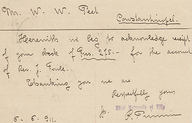 Mr. W. W. Peet
Constantinople.
Herewith we beg to acknowledge receipt
of your check of for the account
of Rev. J. Goule.
Thanking you we are
Respectfully yours